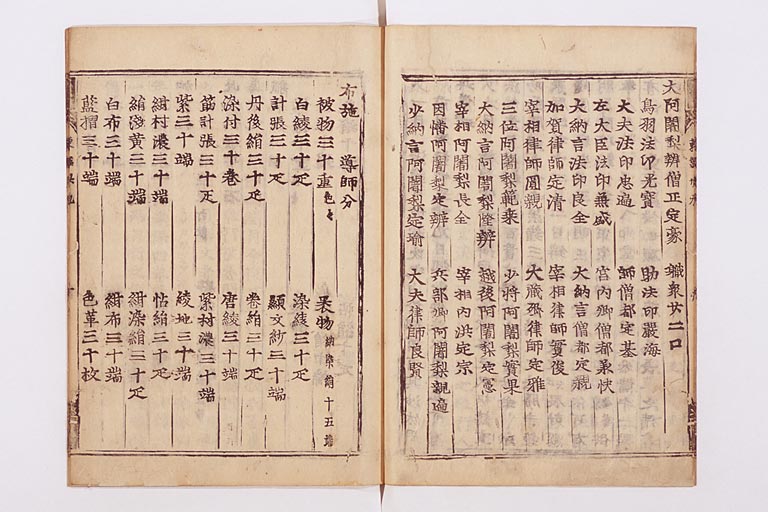 大阿闍梨辨僧正定豪 職衆廿二口
鳥羽法印光寶 助法印嚴海
大夫法印忠遍 師僧都定基
左大臣法印兼盛 宮内卿僧都兼快
大納言法印良全 大納言僧都定親
加賀律師定清 宰相律師實俊
宰相律師圓親 大藏卿律師定雅
三位阿闍梨範乘 少將阿闍梨實果
大納言阿闍梨隆辨 越後阿闍梨定憲
宰相阿闍梨長全 宰相内洪定宗
因幡阿闍梨定辨 兵部卿阿闍梨親遍
少納言阿闍梨定瑜 大夫律師良賢
布施 導師分
被物三十重色々 表物納染絹十五端
白綾三十疋 染綾三十疋
計張三十疋 顯文紗三十端
丹後絹三十疋 卷絹三十疋
染付三十卷 唐綾三十端
筋計張三十疋 紫村濃三十端
紫三十端 綾地三十端
紺村濃三十端 帖絹三十疋
絹淺黄三十端 紺染絹三十疋
白布三十端 紺布三十端
藍摺三十端 色革三十枚